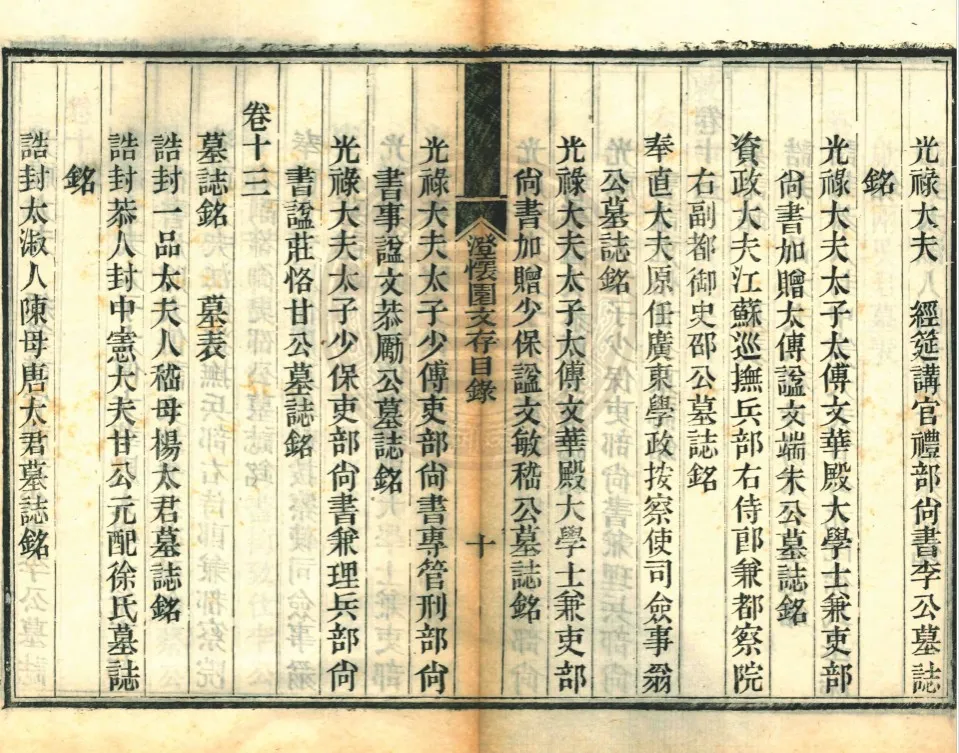 光祿大夫 經筵講官禮部尙書李公墓誌
銘
光祿大夫太子太傅文華殿大學士兼吏部
尙書加贈太傅諡文端朱公墓誌銘
資政大夫江蘇巡撫兵部右侍郎兼都察院
右副都御史邵公墓誌銘
奉直大夫原任廣東學政按察使司僉事翁
公墓誌銘
光祿大夫太子太傅文華殿大學士兼吏部
尙書加贈少保諡文敏嵇公墓誌銘
澄懷園文存目錄
十
光祿大夫太子少傅吏部尙書專管刑部尙
書事諡文恭勵公墓誌銘
光祿大夫太子少保吏部尙書兼理兵部尙
書諡莊恪甘公墓誌銘
卷十三
墓誌銘 墓表
誥封一品太夫人嵇母楊太君墓誌銘
誥封恭人封中憲大夫甘公元配徐氏墓誌
銘
誥封太淑人陳母唐太君墓誌銘